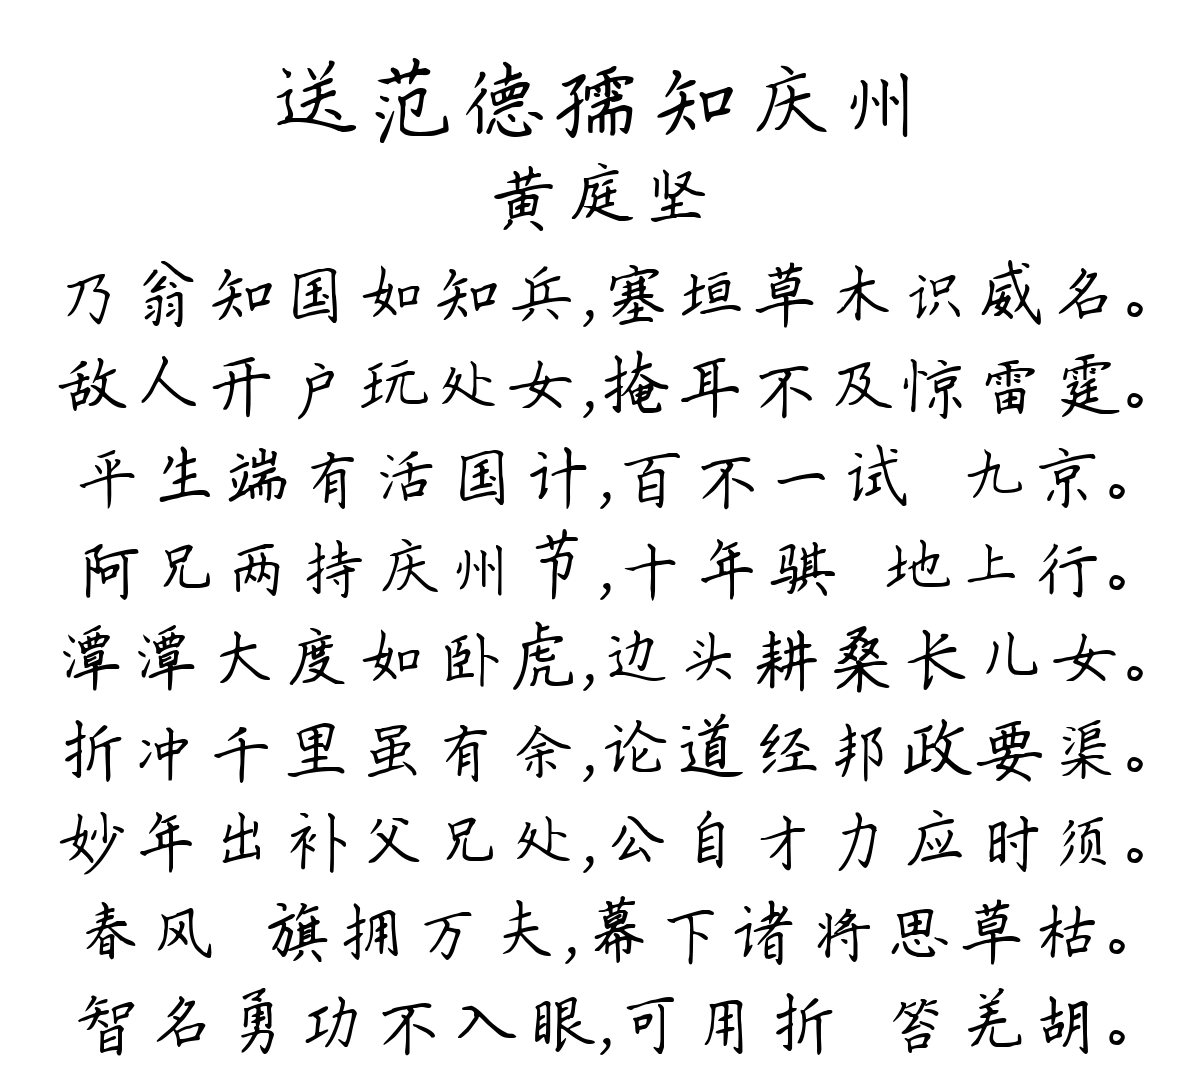 送范德孺知庆州
黄庭坚
乃翁知国如知兵,塞垣草木识威名。
敌人开户玩处女,掩耳不及惊雷霆。
平生端有活国计,百不一试 九京。
阿兄两持庆州节,十年骐 地上行。
潭潭大度如卧虎,边头耕桑长儿女。
折冲千里虽有余,论道经邦政要渠。
妙年出补父兄处,公自才力应时须。
春风 旗拥万夫,幕下诸将思草枯。
智名勇功不入眼,可用折 笞羌胡。